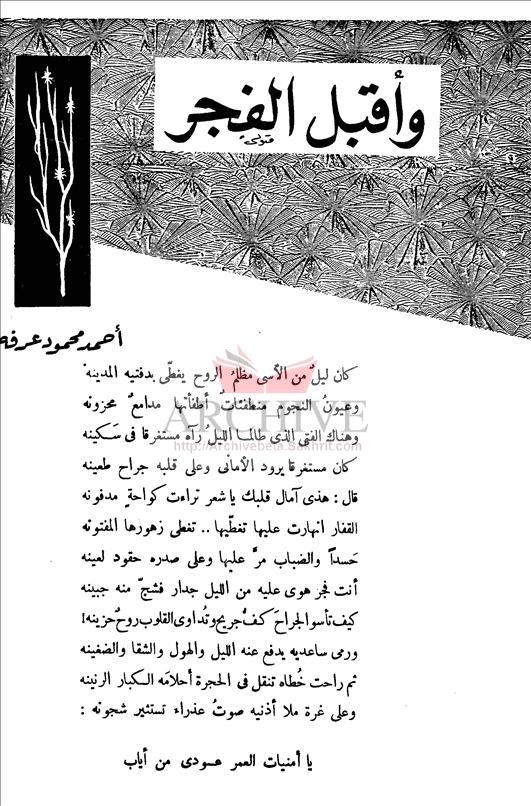 وأقبل الفجر
متولى
أحمد محمود عرفه
كان ليلٌ من الأسى مظلمُ الروح يغطّى بدفتيه المدينهْ
وعيونُ النجوم منطفئاتٌ أطفأتها مدامعٌ محزونه
وهناك الفتى الذى طالما الليلُ رآه مستغرقا فى سَكينه
كان مستغرقا يرود الأمانى وعلى قلبه جراح طعينه
قال : هذى آمال قلبك يا شعر تراءت كواحةٍ مدفونه
القفار انهارت عليها تغطّيها .. تغطى زهورها المفتونه
حَسداً والضباب مرَّ عليها وعلى صدره حقود لعينه
أنت فجر هوى عليه من الليل جدار فشجّ منه جبينه
كيف تأسو الجراحَ كفُّ جريح وتُداوى القلوب روحٌ حزينه!
ورمى ساعديه يدفع عنه الليل والهول والشقا والضغينه
ثم راحت خُطاه تنقل فى الحجرة أحلامَه الكبار الرنينه
وعلى غرة ملا أذنيه صوتُ عذراء تستثير شجونه :
يا أمنيات العمر عودى من أياب
ARCHIVE
http://Archivebeta.Sakhrit.com